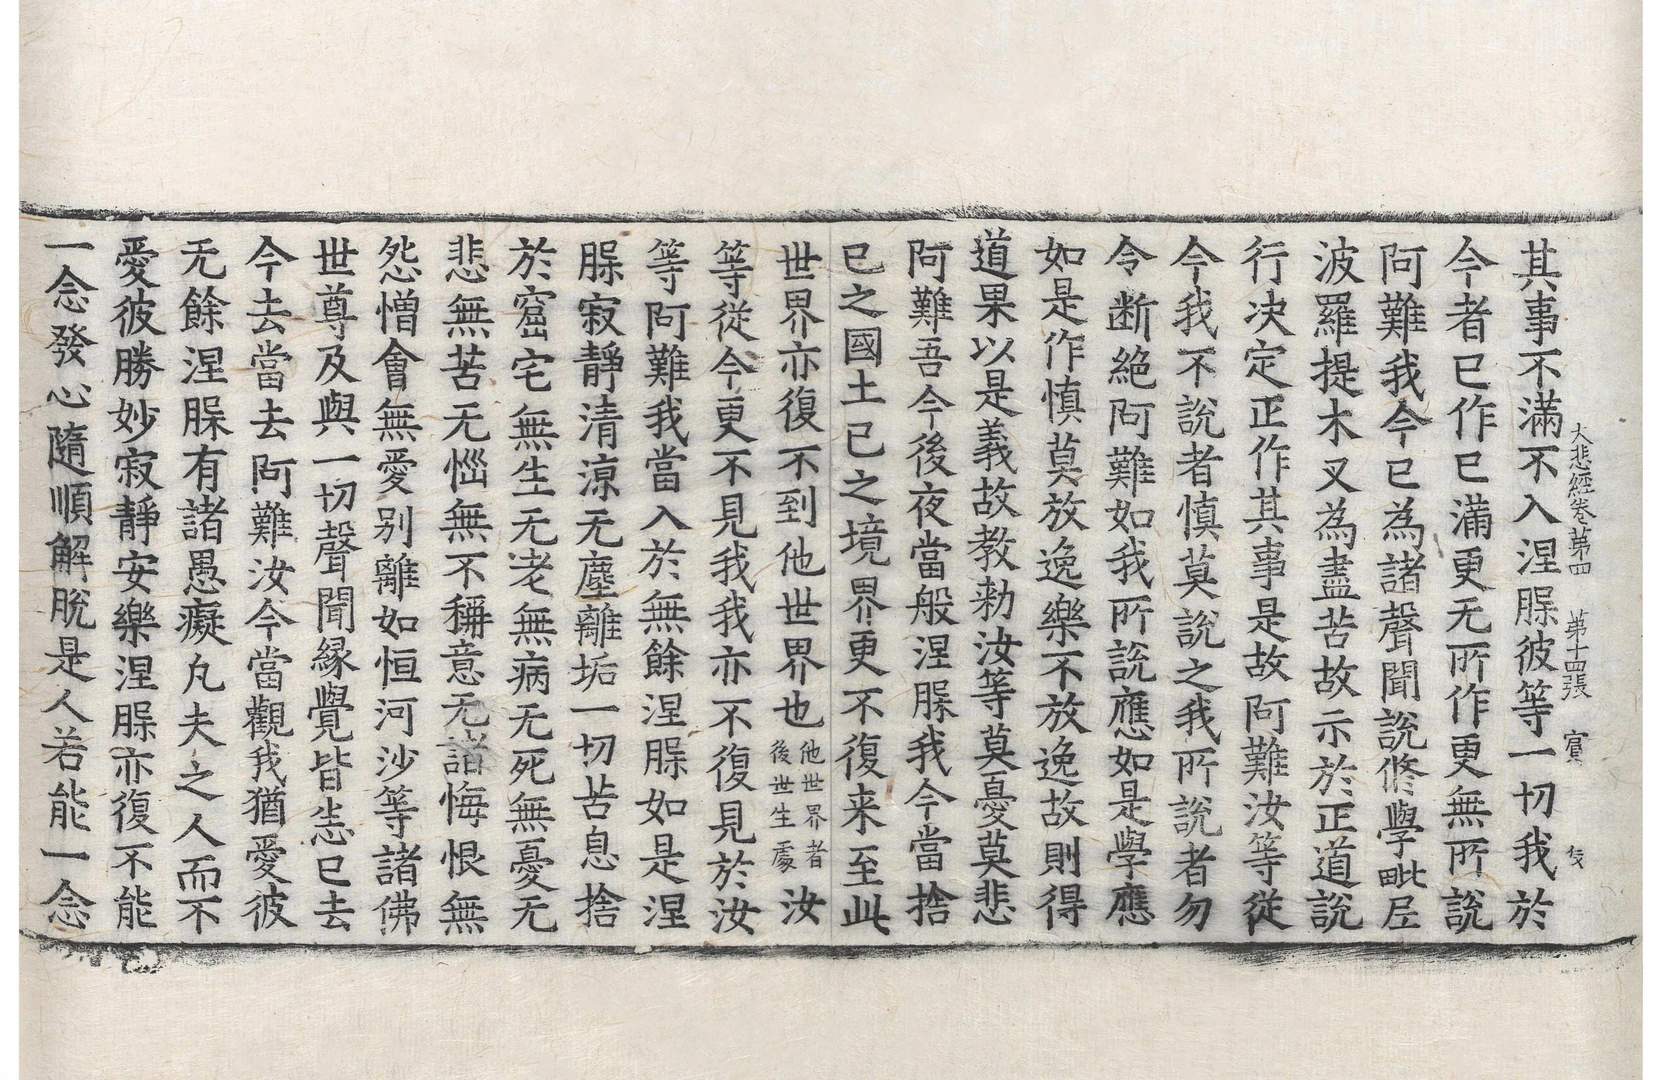 大悲經卷第四　第十四張　賓
其事不滿不入涅槃彼等一切我於
今者已作已滿更无所作更無所說
阿難我今已為諸聲聞說俢學毗𡰱
波羅提木叉為盡苦故示於正道說
行决定正作其事是故阿難汝等從
今我不說者慎莫說之我所說者勿
令断絕阿難如我所說應如是學應
如是作慎莫放逸樂不放逸故則得
道果以是義故教勑汝等莫憂莫悲
阿難吾今後夜當般涅槃我今當捨
已之國土已之境界更不復来至此
世界亦復不到他世界也他世界者後世生處汝
等從今更不見我我亦不復見於汝
等阿難我當入於無餘涅槃如是涅
槃寂靜清涼无塵離垢一切苦息捨
於窟宅無生无老無病无死無憂无
悲無苦无惱無不稱意无諸悔恨無
怨憎會無愛别離如恒河沙等諸佛
世尊及與一切聲聞縁覺皆悉已去
今去當去阿難汝今當觀我猶愛彼
无餘涅槃有諸愚癡凡夫之人而不
愛彼勝妙寂靜安樂涅槃亦復不能
一念發心隨順解脫是人若能一念